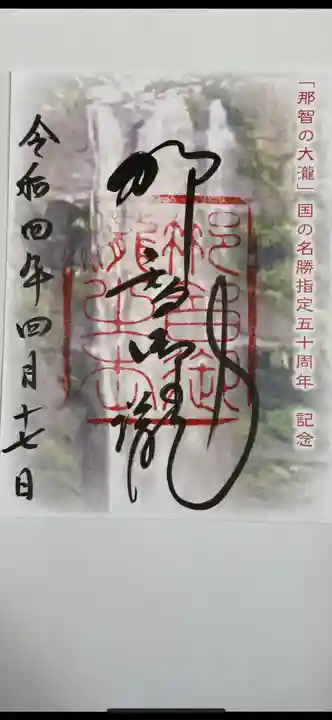 「那智の大瀧」国の名勝指定五十周年　記念
那智御瀧
令和四年四月十七日